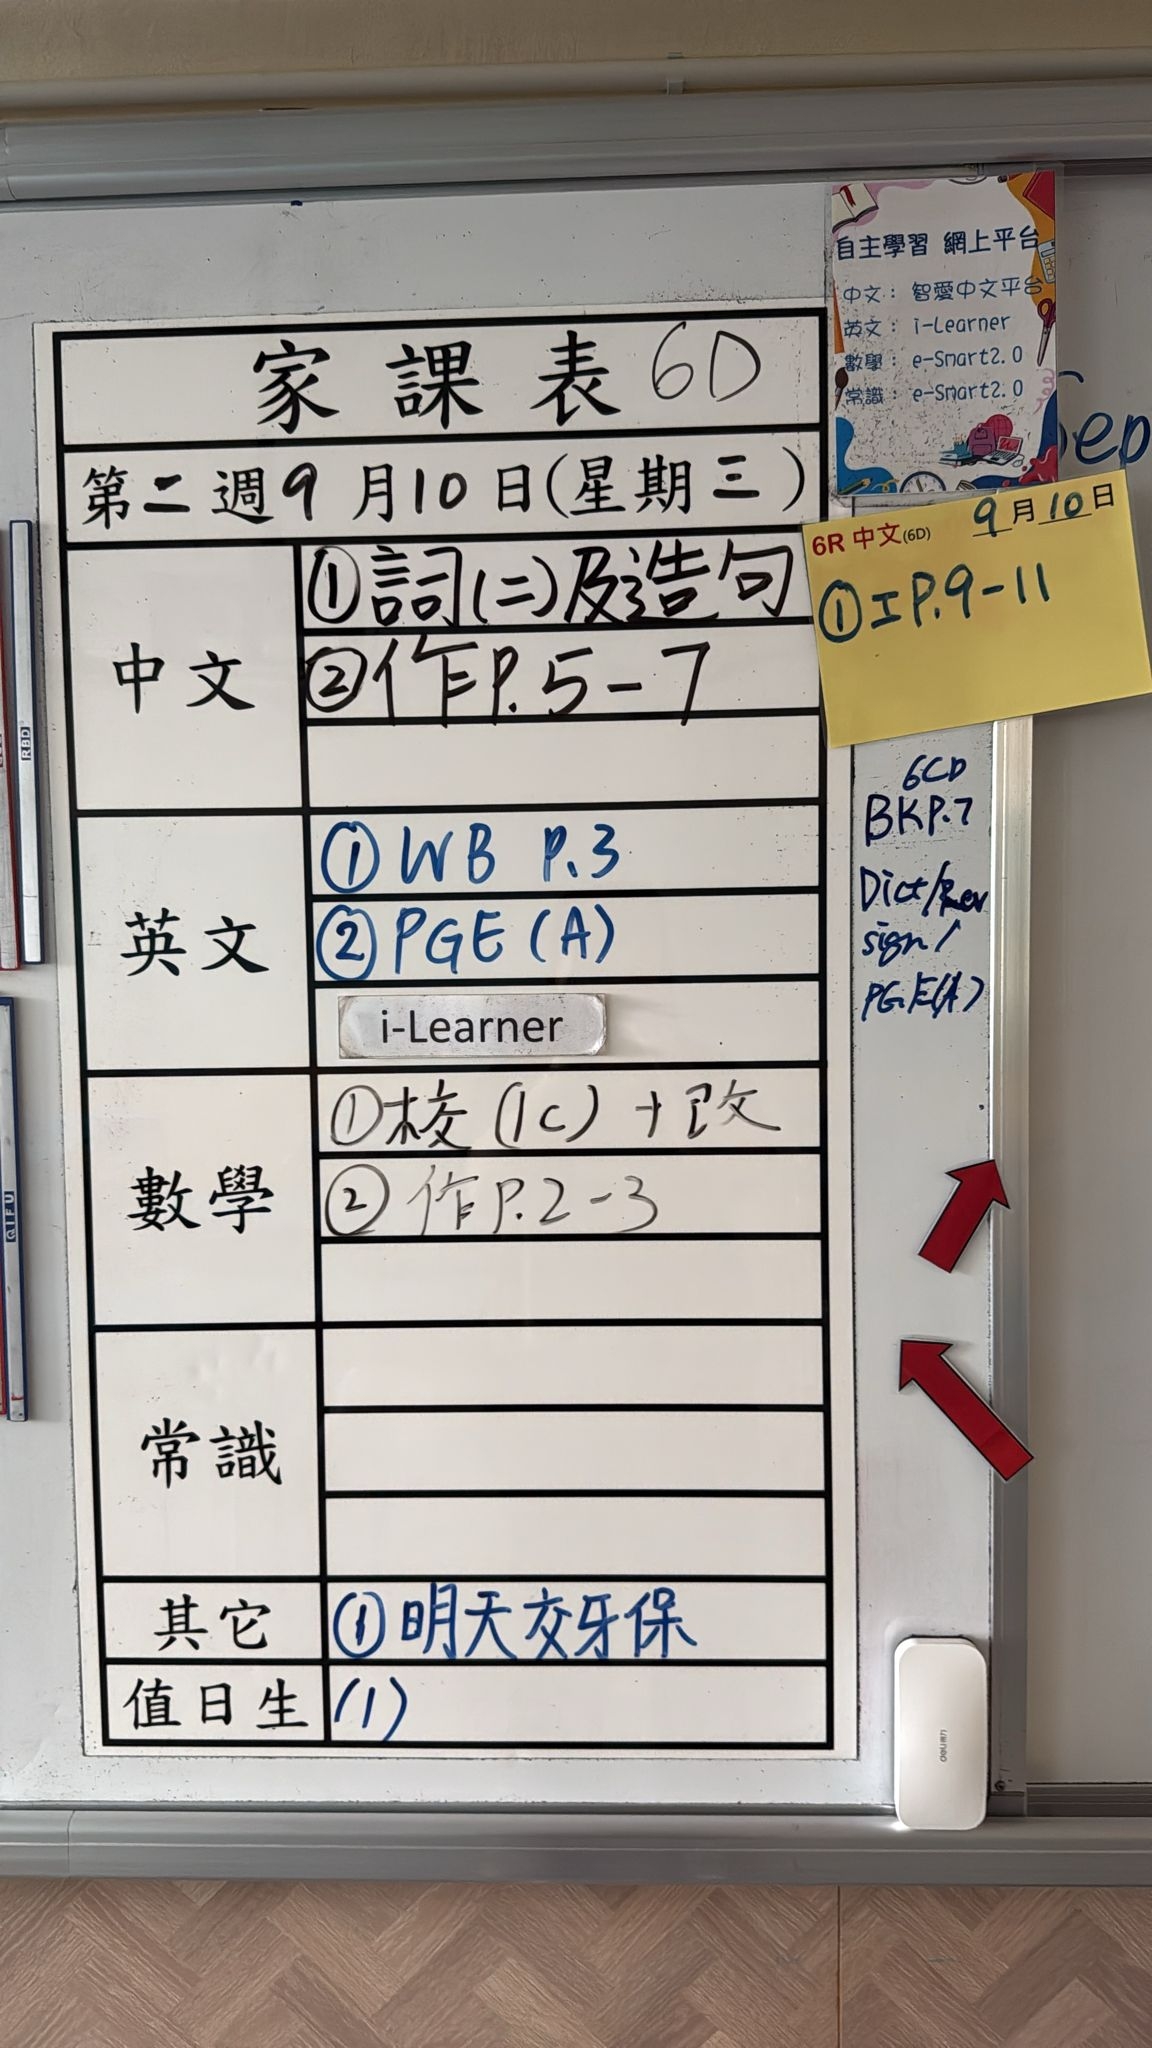 自主學習 網上平台
中文： 智愛中文平台
英文： i-Learner
數學： e-Smart2.0
常識： e-Smart2.0
家課表 6D
第二週9月10日(星期三)
中文
①詞(二)及造句
②作P.5-7
6R 中文(6D) 9月10日
①工P.9-11
英文
①WB P.3
②PGE(A)
i-Learner
6CD
BKP.7
Dict/Rev
sign/
PGE(A)
數學
①校(1C)+改
②作P.2-3
常識
其它
①明天交牙保
值日生
(1)
Sep
RBD
QIFU
deli得力